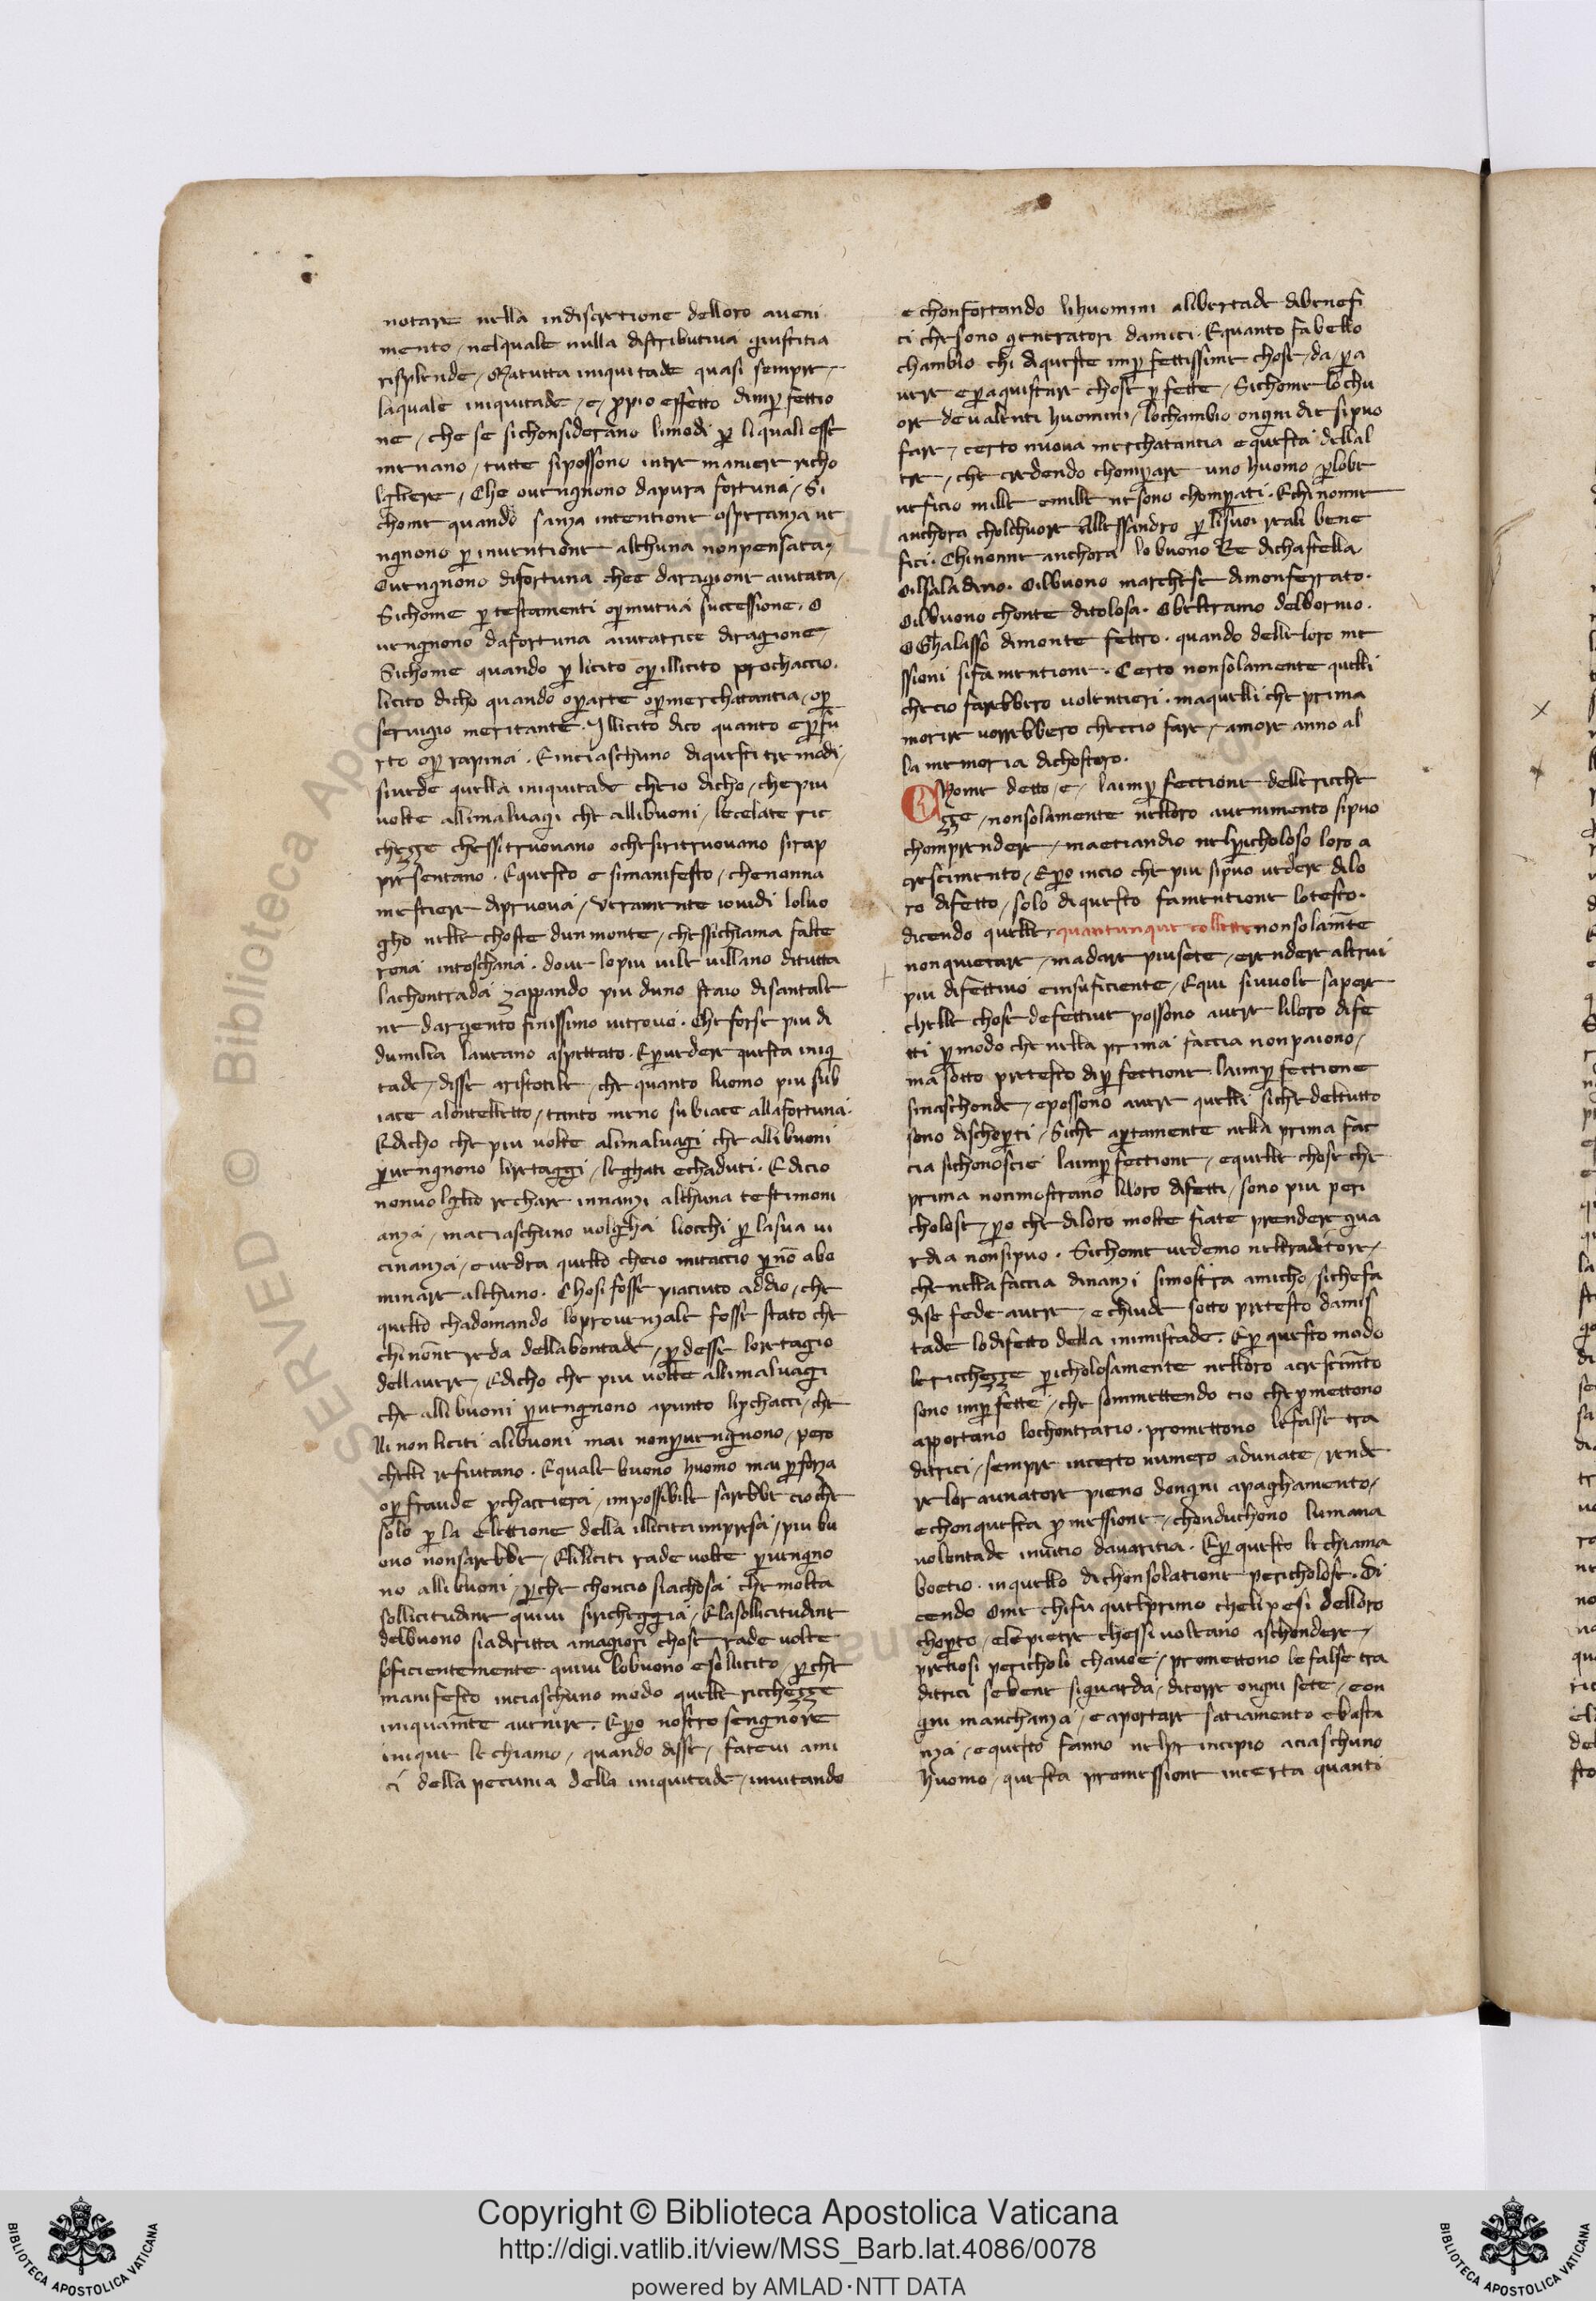 notare nella indiscretione delloro aveni
mento / nelquale nulla distributiva giustitia
risplende / Matutta iniquitade quasi sempre /
laquale iniquitade / e / p̱pio effetto dimp̱fettio
ne / che se sichonsiderano limodi p̱ liquali esse
menano / tutte sipossono intre maniere richo
lgliere / Che ovengnono dapura fortuna / Si
chome quando sanza intentione osperanza ve
ngnono p̱ inventione alchuna nonpensata /
Ovengnono difortuna chee daragione aiutata /
Sichome p̱ testamenti op̱ mutua successione / O
vengnono dafortuna aiutatrice diragione /
Sichome quando p̱ licito op̱ illicito prochaccio .
licito dicho quando op̱arte op̱merchatantia / op̱
servigio meritante . Illicito dico quanto e p̱fu
rto op̱ rapina . Einciaschuno diquesti tre modi /
sivede quella iniquitade cheio dicho / chepiu
volte allimalvagi che allibuoni / lecelate ric
chezze chessitruovano ochesiritruovano sirap
presentano . Equesto e simanifesto / chenonna
mestiere dipruova / Veramente iovidi loluo
gho nelle choste dunmonte / chessichiama falte
rona intoschana . dove lopiu vile villano ditutta
lachontrada zappando piu duno staio disantale
ne dargento finissimo vitrovo . Che forse piu di
dumilia laveano aspettato . Ep̱vedere questa iniq̱
tade / disse aristotile / che quanto luomo piu sub
iace alontelletto / tanto meno subiace allafortuna .
Edicho che piu volte alimalvagi che allibuoni
p̱vengnono liretaggi / leghati echaduti . Edicio
nonvo lglio rechare innanzi alchuna testimoni
anza / maciaschuno volgha liocchi p̱ lasua vi
cinanza / evedra quello cheio mitaccio p̱nō abo
minare alchuno . Chosi fosse piaciuto addio / che
quello chadomando loprovenzale fosse stato che
chi nonne reda dellabontade / p̱desse loretagio
dellavere / Edicho che piu volte allimalvagi
che allibuoni p̱vengnono apunto lip̱chacci / che
lli non liciti alibuoni mai nonp̱vengnono / pero
chelli refiutano . Equale buono huomo mai p̱forza
op̱ fraude p̱chacciera / impossibile sarebbe cioche
solo p̱ la elettione della illicita impresa / piu bu
ono nonsarebbe / Eliliciti rade volte p̱vengno
no allibuoni / p̱che choncio siachosa che molta
sollicitudine quivi siricheggia / Elasollicitudine
delbuono siadiritta amagiori chose rade volte
soficientemente quivi lobuono esollicito / p̱che
manifesto inciaschuno modo quelle ricchezze
iniquam̄te avenire . Ep̱o nostro sengnore
inique lechiamo / quando disse / fatevi ami
ci della pecunia della iniquitade / invitando
e chonfortando lihuomini alibertade dibenefi
ci chesono generatori damici . Equanto fabello
chambio chi diqueste imp̱fettissime chose / da / p̱a
vere e p̱aquistare chose p̱fette / Sichome lochu
ore devalenti huomini / lochambio ongni die sipuo
fare / certo nuova merchatantia equesta dellal
tre / che credendo chomp̱are uno huomo / p̱lobe
neficio mille emille ne sono chomp̱ati . Echi nonne
anchora cholchuore Allessandro p̱ lisuoi reali bene
fici . Chinonne anchora lo buono Re dichastella
oilsaladino . Oilbuono marchese dimonferrato .
Oilbuono chonte ditolosa . Obeltramo delbornio .
OGhalasso dimonte feltro . quando delle loro me
ssioni sifa mentione . Certo nonsolamente quelli
checio farebbero volentieri . maquelli che prima
morire vorrebbero checcio fare / amore anno al
la memoria dichostoro .
CHome detto / e / laimp̱fectione dellericche
zze / nonsolamente nelloro avenimento sipuo
chomprendere / maetiandio nelp̱icholoso loro a
crescimento / Ep̱o incio che piu sipuo vedere dilo
ro difetto / solo diquesto famentione lotesto .
dicendo quelle quantunque collette nonsolam̄te
nonquietare / madare piusete / erendere altrui
piu difettivo einsuficiente / Equi sivvole sapere
chelle chose defettive possono avere liloro dife
tti p̱ modo che nella prima faccia nonpaiono /
ma sotto pretesto dip̱fectione laimp̱fettione
sinaschonde / epossono avere quelli siche deltutto
sono dischop̱ti / Siche ap̱tamente nella prima fac
cia sichonoscie laimp̱fectione / equelle chose che
prima nonmostrano liloro difetti / sono piu peri
cholose / p̱o che diloro molte fiate prendere gua
rdia nonsipuo . Sichome vedemo neltraditore /
che nella faccia dinanzi simostra amicho / siche fa
dise fede avere / e chiude sotto pretesto damis
tade lodifetto della inimistade . Ep̱ questo modo
le ricchezze p̱icholosamente nelloro acrescim̄to
sono imp̱fette / che sommettendo cio che p̱mettono
apportano lochontrario . promettono lefalse tra
ditrici / sempre incerto numero adunate / rende
re lor aunatore pieno dongni apaghamento /
echonquesta p̱messione / chonduchono lumana
volontade invitio davaritia . Ep̱ questo le chiama
boetio . inquello dichonsolatione pericholose . di
cendo Ome chifu quelprimo chelipesi delloro
chop̱to / elepietre chessi voleano aschondere /
pretiosi pericholi chavoe / promettono lefalse tra
ditrici sebene siguarda / ditorre ongni sete / eon
gni manchanza / eaportare satiamento ebasta
nza / equesto fanno nelprincipio aciaschuno
huomo / questa promessione incerta quanti
Copyright © Biblioteca Apostolica Vaticana
http://digi.vatlib.it/view/MSS_Barb.lat.4086/0078
powered by AMLAD·NTT DATA
BIBLIOTECA APOSTOLICA VATICANA
BIBLIOTECA APOSTOLICA VATICANA